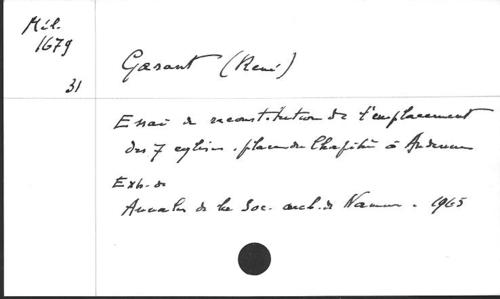 Mél.
1679
31
Garant (René)
Essai de reconstitution de l'emplacement
des 7 églises. place du Chapitre à Andenne
Extr. de
Annales de la Soc. arch. de Namur. 1965